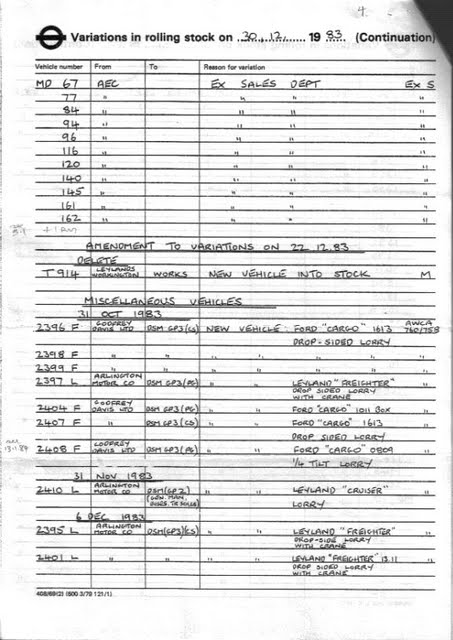 4.
Variations in rolling stock on 30.12. 1983 (Continuation)
Vehicle number From To Reason for variation
MD 67 AEC EX SALES DEPT EX S
77 " " " "
84 " " " "
94 " " " "
96 " " " "
116 " " " "
120 " " " "
140 " " " "
145 " " " "
161 " " " "
162 " " " "
AMENDMENT TO VARIATIONS ON 22.12.83
DELETE
T914 LEYLANDS WORKINGTON WORKS NEW VEHICLE INTO STOCK M
MISCELLANEOUS VEHICLES
31 OCT 1983
2396 F GODFREY DAVIS LTD DSM GP3(CS) NEW VEHICLE: FORD "CARGO" 1613 AWCA 760/758
DROP-SIDED LORRY
2398 F " " " " " " "
2399 F " " " " " " "
2397 L ARLINGTON MOTOR CO DSM GP3(PG) " " LEYLAND "FREIGHTER" "
DROP SIDED LORRY
WITH CRANE
2404 F GODFREY DAVIS LTD DSM GP3(PG) " " FORD "CARGO" 1011 BOX "
2407 F " DSM GP3(CS) " " FORD "CARGO" 1613 "
DROP SIDED LORRY
2408 F GODFREY DAVIS LTD DSM GP3(PG) " " FORD "CARGO" 0809 "
1/4 TILT LORRY
31 NOV 1983
2410 L ARLINGTON MOTOR CO DSM(GP2) " " LEYLAND "CRUISER" "
LORRY
6 DEC 1983
2395 L ARLINGTON MOTOR CO DSM(GP3)(CS) " " LEYLAND "FREIGHTER" "
DROP-SIDE LORRY
WITH CRANE
2401 L " " " " LEYLAND "FREIGHTER" 13.11 "
DROP SIDED LORRY
WITH CRANE
408/69(2) (500 3/79 121/1)